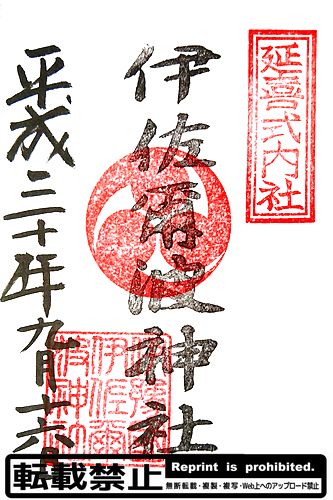 延喜式内社
伊佐爾波神社
平成三十年九月十六日
転載禁止
Reprint is prohibited.
無断転載・複製・複写・Web上へのアップロード禁止